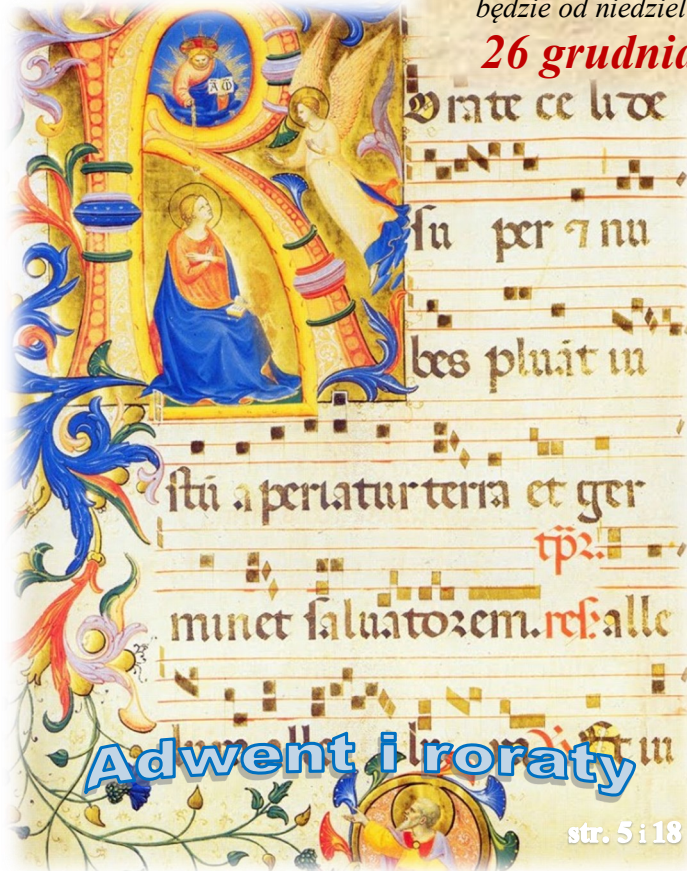 będzie od niedziel
26 grudnia
Rorate celi de
su per ⁊ nu
bes pluāt iu
stū aperiatur terra et ger
tp̄r.
minet saluatorem. res: alle
alle
Et iu
Adwent i roraty
str. 5 i 18